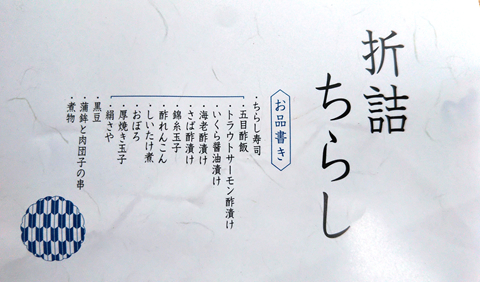 折詰
ちらし
お品書き
・ちらし寿司
・五目酢飯
・トラウトサーモン酢漬け
・いくら醤油漬け
・海老酢漬け
・さば酢漬け
・錦糸玉子
・酢れんこん
・しいたけ煮
・おぼろ
・厚焼き玉子
・絹さや
・黒豆
・蒲鉾と肉団子の串
・煮物